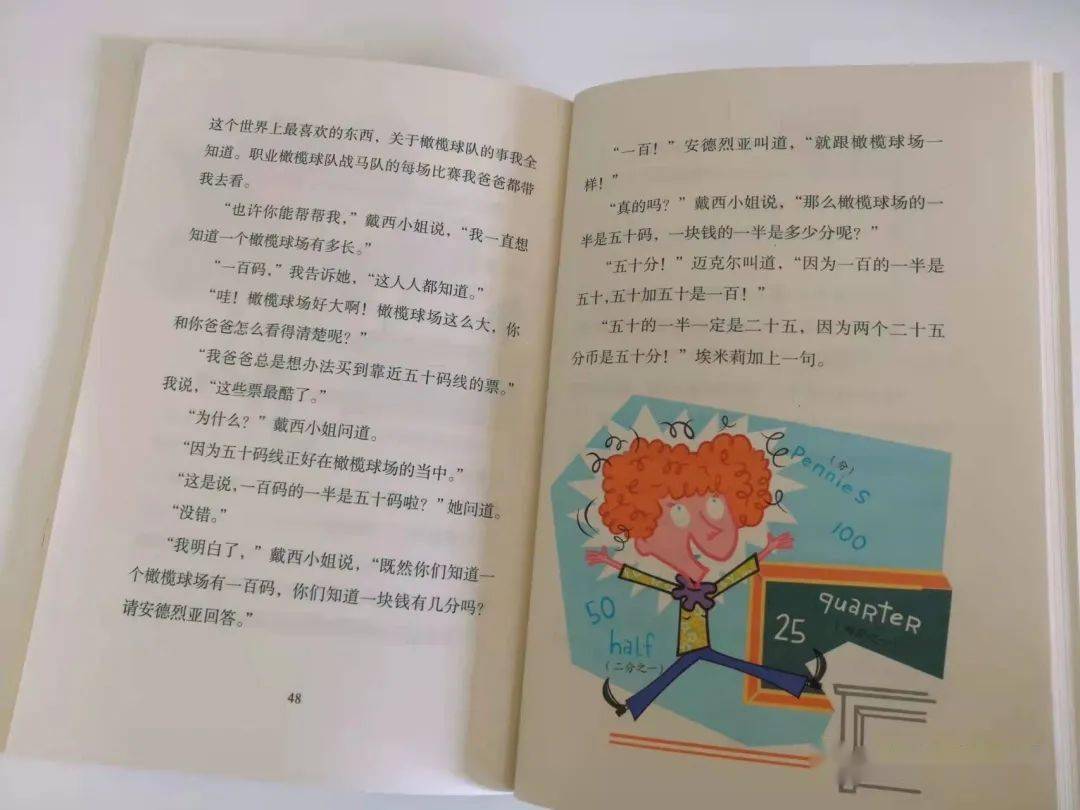 这个世界上最喜欢的东西，关于橄榄球队的事我全
知道。职业橄榄球队战马队的每场比赛我爸爸都带
我去看。
“也许你能帮帮我，”戴西小姐说，“我一直想
知道一个橄榄球场有多长。”
“一百码，”我告诉她，“这人人都知道。”
“哇！橄榄球场好大啊！橄榄球场这么大，你
和你爸爸怎么看得清楚呢？”
“我爸爸总是想办法买到靠近五十码线的票。”
我说，“这些票最酷了。”
“为什么？”戴西小姐问道。
“因为五十码线正好在橄榄球场的当中。”
“这是说，一百码的一半是五十码啦？”她问道。
“没错。”
“我明白了，”戴西小姐说，“既然你们知道一
个橄榄球场有一百码，你们知道一块钱有几分吗？
请安德烈亚回答。”
48
“一百！”安德烈亚叫道，“就跟橄榄球场一
样！”
“真的吗？”戴西小姐说，“那么橄榄球场的一
半是五十码，一块钱的一半是多少分呢？”
“五十分！”迈克尔叫道，“因为一百的一半是
五十，五十加五十是一百！”
“五十的一半一定是二十五，因为两个二十五
分币是五十分！”埃米莉加上一句。
（分）
Pennies
100
50
half
（二分之一）
quarter
25